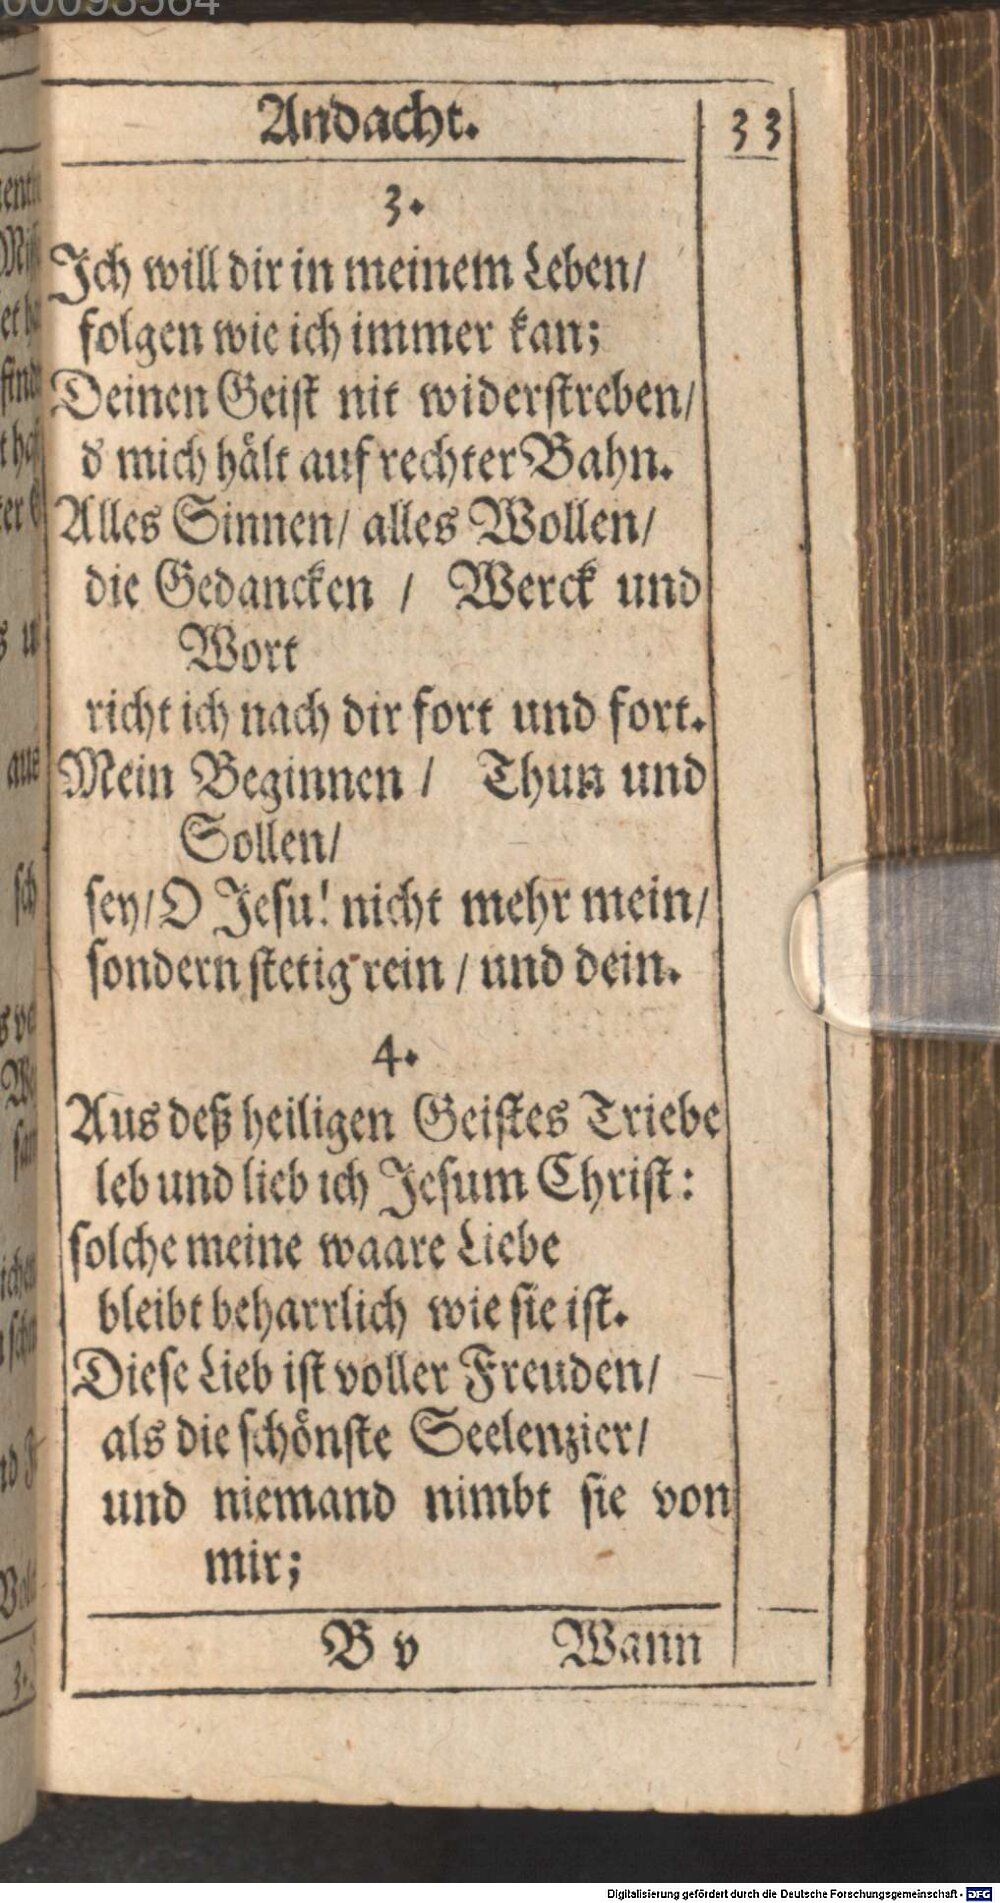 Andacht. 33
3.
Ich will dir in meinem Leben/
folgen wie ich immer kan;
Deinen Geist nit widerstreben/
d mich hält auf rechter Bahn.
Alles Sinnen/ alles Wollen/
die Gedancken / Werck und
Wort
richt ich nach dir fort und fort.
Mein Beginnen / Thun und
Sollen/
sey/ O Jesu! nicht mehr mein/
sondern stetig rein / und dein.
4.
Aus deß heiligen Geistes Triebe
leb und lieb ich Jesum Christ:
solche meine waare Liebe
bleibt beharrlich wie sie ist.
Diese Lieb ist voller Freuden/
als die schönste Seelenzier/
und niemand nimbt sie von
mir;
B v Wann
Digitalisierung gefördert durch die Deutsche Forschungsgemeinschaft - DFG